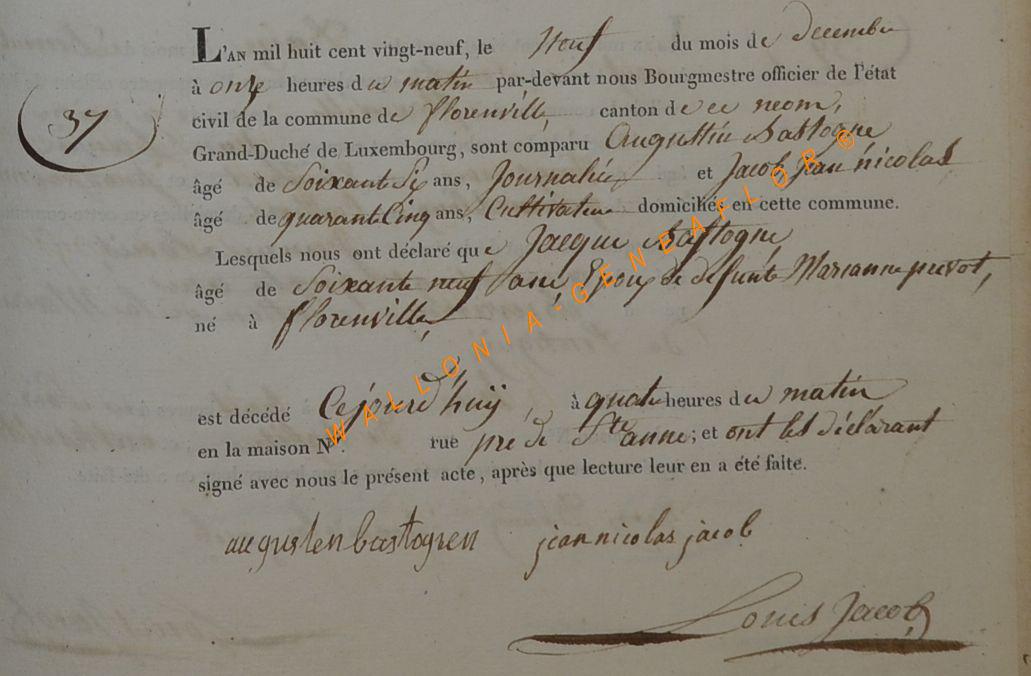 L'AN mil huit cent vingt-neuf, le Neuf du mois de decembre
à onze heures du matin par-devant nous Bourgmestre officier de l'état
civil de la commune de florenville canton de ce nom,
37
Grand-Duché de Luxembourg, sont comparu Augustin Bastogne
âgé de Soixant Six ans, Journalier et Jacob Jean nicolas
âgé de quarant Cinq ans, Cultivateur domiciliés en cette commune.
Lesquels nous ont déclaré que Jacque Bastogne
âgé de Soixante neuf ans, Epoux de defunte Marianne prevot,
né à florenville
est décédé Cejourd'huy, à quatre heures du matin
en la maison N°. rue pré de Ste anne; et ont les déclarant
signé avec nous le présent acte, après que lecture leur en a été faite.
augusten bastognen jean nicolas jacob
Louis Jacob
WALLONIA-GENBAFLOR ®